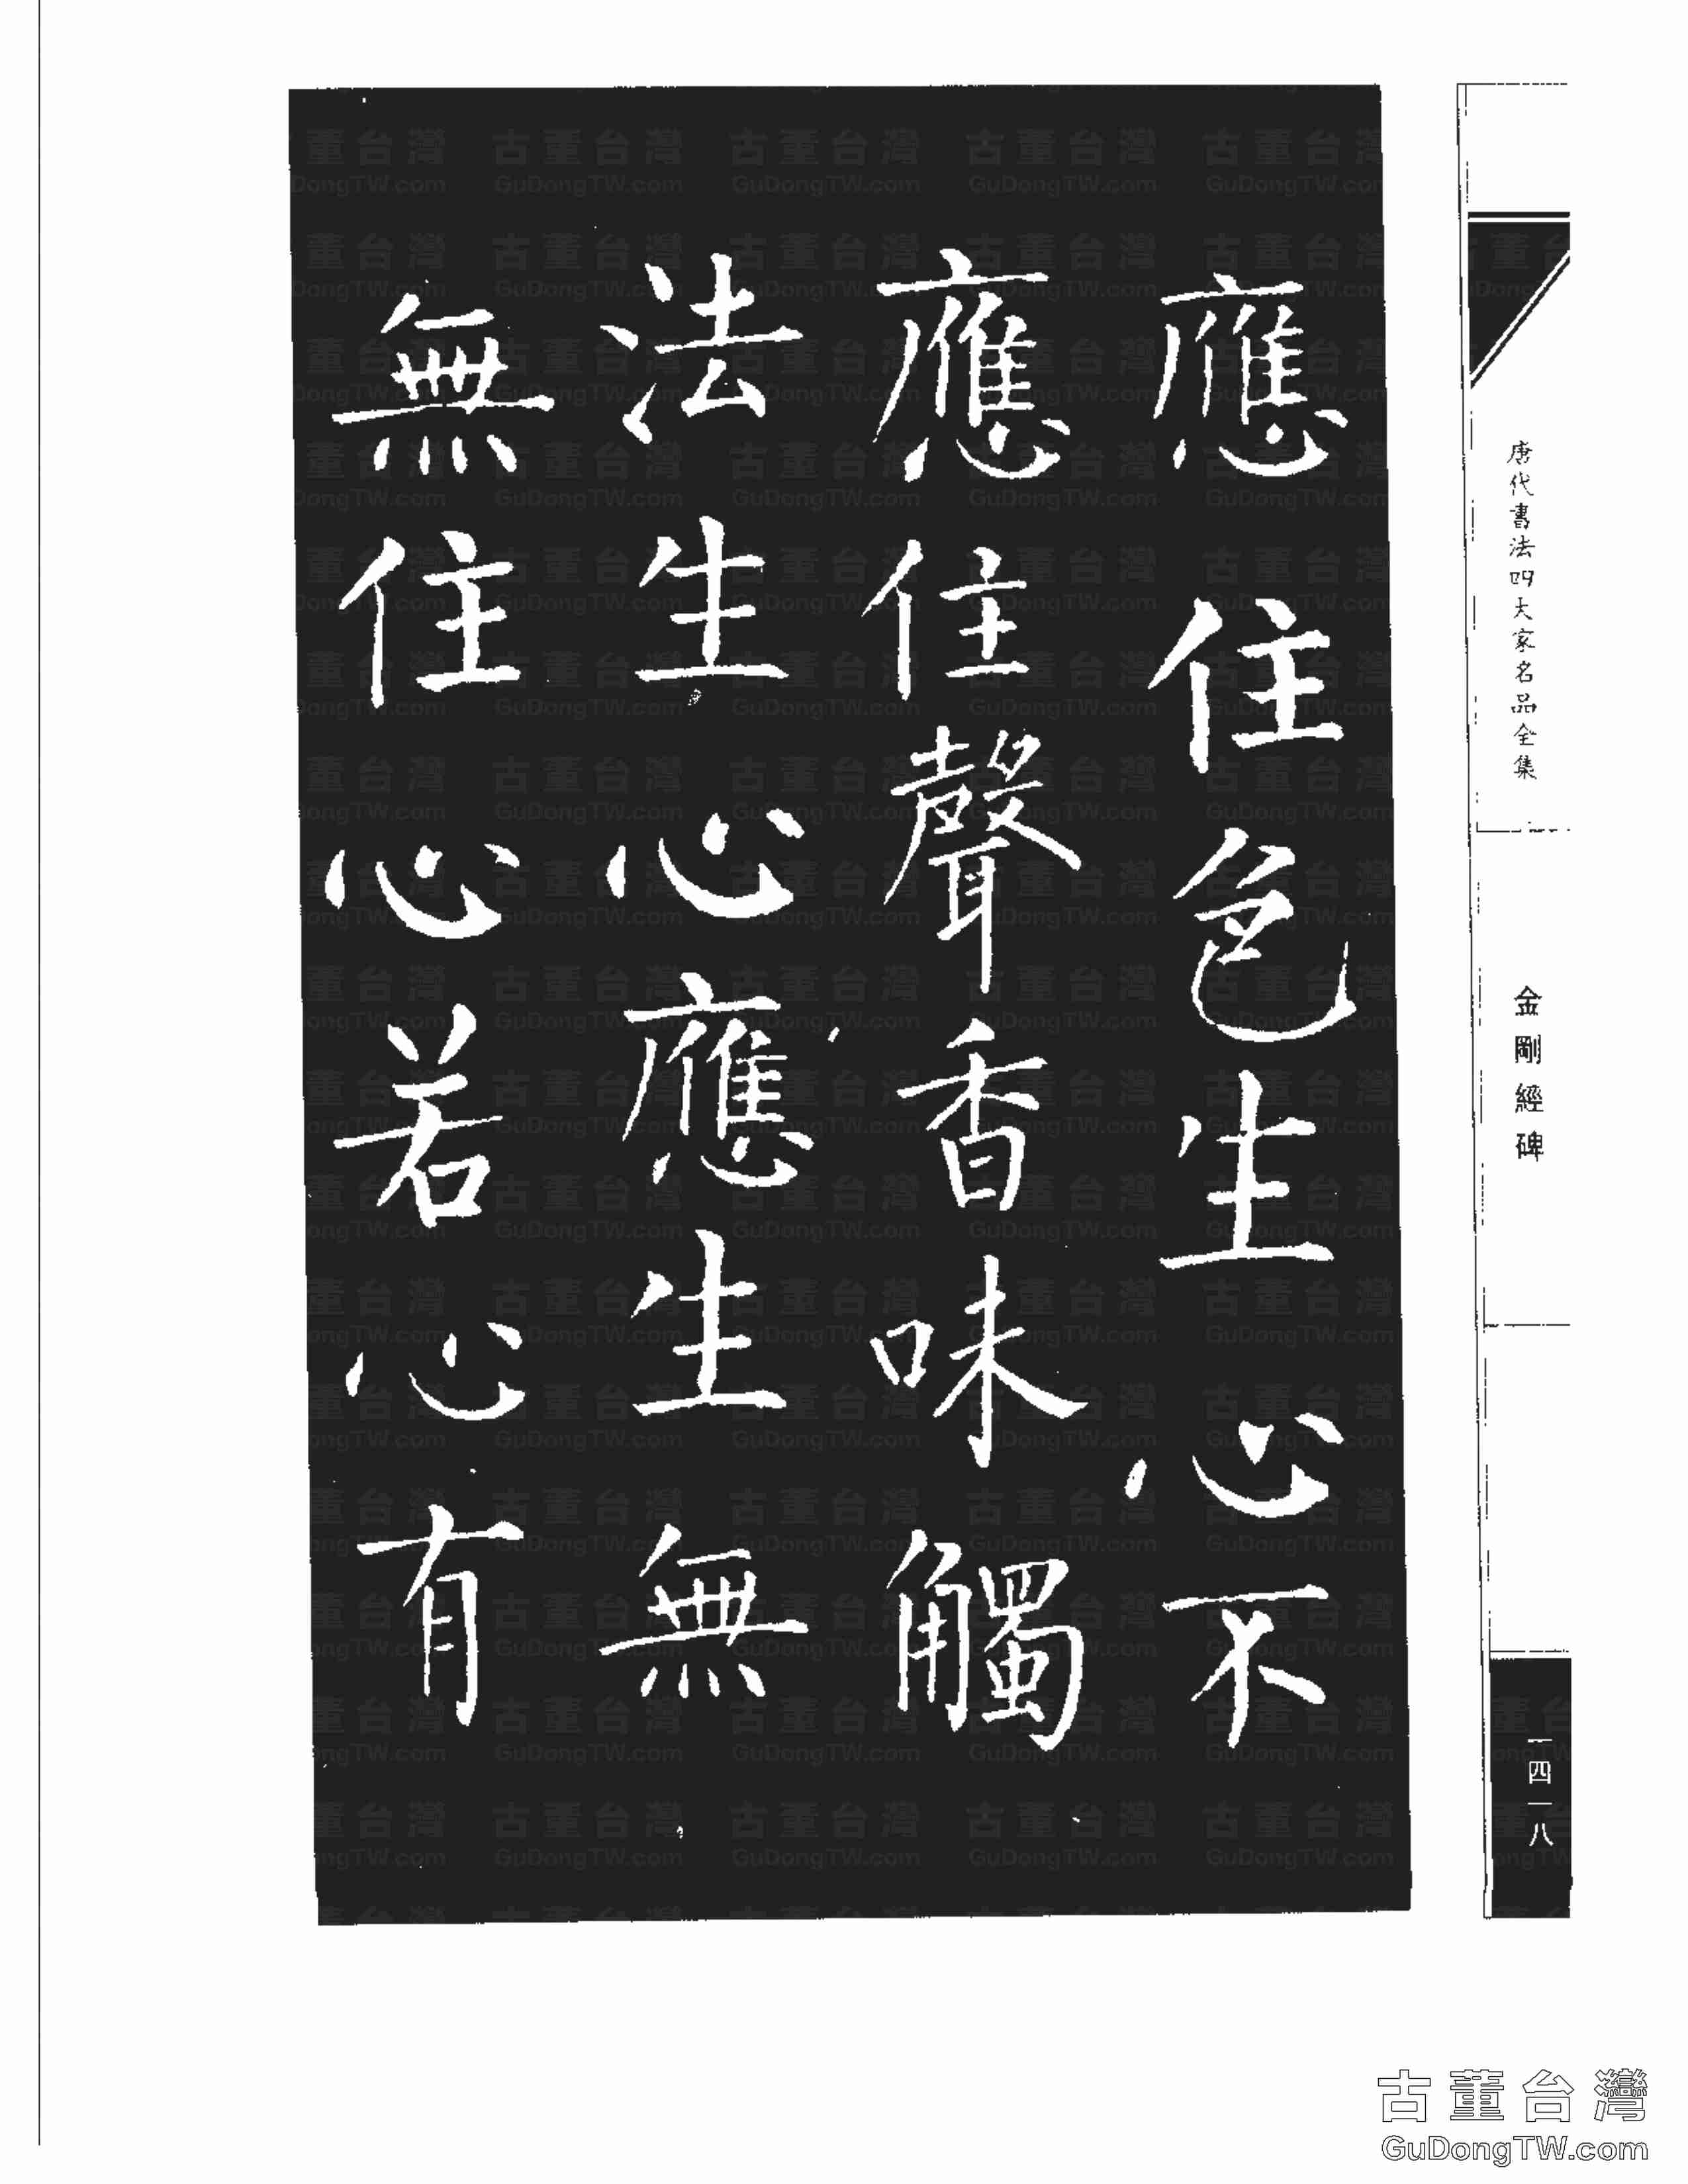 應住色生心不
應住聲香味觸
法生心應生無
無住心若心有
唐代書法四大家名品全集
金剛經碑
一四一八
古董台灣
GuDongTW.com